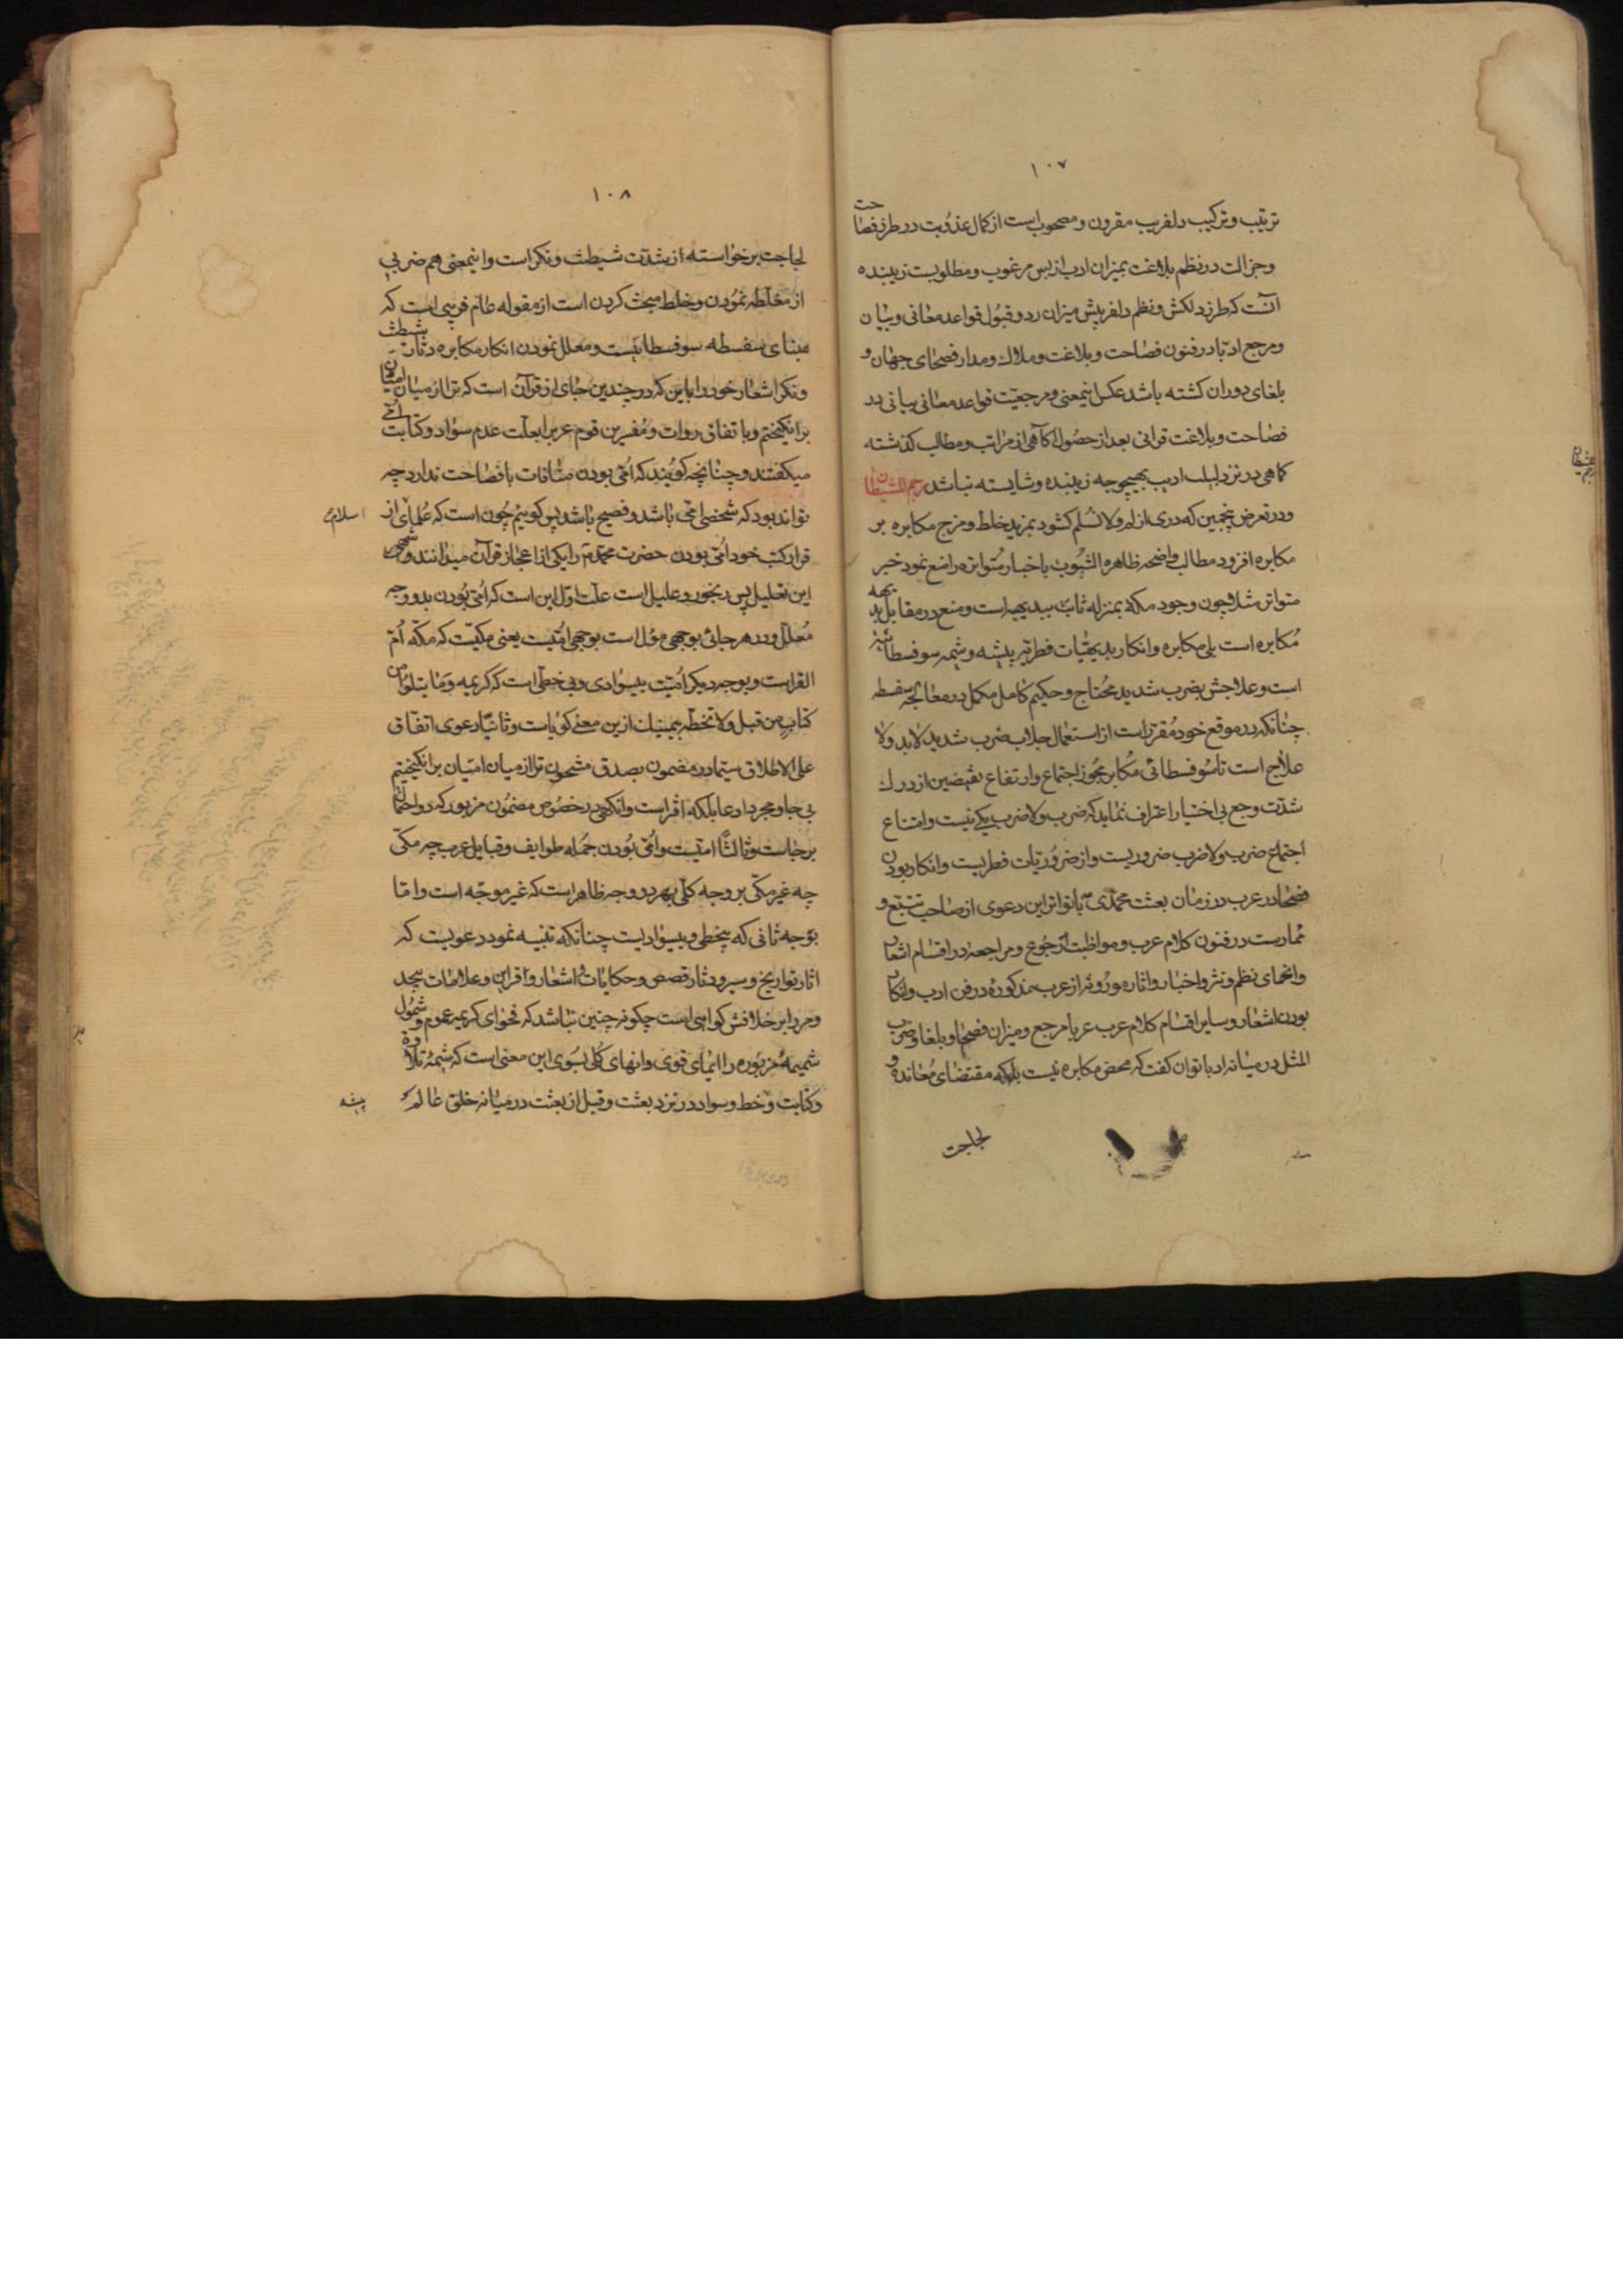 ۱۰۷
ترتیب و ترکیب دلفریب مقرون و مصحوب است از کمال عذوبت در طرز فصاحت
وجزالت در نظم بلاغت بمیزان ادب از بس مرغوب و مطلوبست زیبنده
آنست که طرز دلکش و نظم دلفریبش میزان رد و قبول قواعد معانی و بیان
و مرجع ادبا در فنون فصاحت و بلاغت و ملاک و مدار فصحای جهان و
بلغای دوران کشته باشد عکس اینمعنی و مرجعیت قواعد معانی بیانی در
فصاحت و بلاغت قرانی بعد از حصول آکاهی از مراتب و مطالب کذشته
کماهی در نزد لبیب ادیب بهیچوجه زیبنده و شایسته نباشد رجم الشیطان
و در تعرض پنجمین که دری از لم ولا نسلم کشود بمزید خلط و مزج مکابره بر
مکابره افزود مطالب واضحه ظاهره الثبوت باخبار متواتره را منع نمود خبر
متواتر مثلا چون وجود مکه بمنزله ثابت ببدیهه است و منع در مقابل بدیهه
مکابره است بلی مکابره و انکار بدیهیات فطریه پیشه و شیمه سوفسطائیه
است و علاجش بضرب شدید محتاج و حکیم کامل مکمل در معالجه سفسطه
چنانکه در موقع خود مقرر است از استعمال جلاب ضرب شدید لابد ولا
علاج است تا سوفسطائی مکابر مجوز اجتماع وارتفاع نقیضین از درک
شدت وجع بی اختیار اعتراف نماید که ضرب ولا ضرب یکی نیست و امتناع
اجتماع ضرب ولا ضرب ضروریست و از ضروریات فطریست و انکار بودن
فصحا در عرب در زمان بعثت محمدی با تواتر این دعوی از صاحب تتبع و
ممارست در فنون کلام عرب و مواظبت رجوع و مراجعه در اقسام اشعار
وانحای نظم و نثر و اخبار و اثار موروثه از عرب مذکوره در فن ادب و انکار
بودن اشعار و سایر اقسام کلام عرب عربا مرجع و میزان فصحا و بلغا و ضرب
المثل در میانه ادبا توان کفت که محض مکابره نیست بلکه مقتضای معانده و
لجاجت
۱۰۸
لجاجت برخواسته از شدت شیطنت و نکر است و اینمعنی هم ضربی
از مغلطه نمودن و خلط مبحث کردن است از مقوله عالم فریبی است که
مبنای سفسطه سوفسطائیست و معلل نمودن انکار مکابره دثار شیطنت
و نکر اشعار خود را باین که در چندین جای از قرآن است که ترا از میان امیان
برانکیختم و باتفاق روات و مفسرین قوم عرب را بعلت عدم سواد و کتابت امی
میکفتند و چنانچه کویند که امی بودن منافات با فصاحت ندارد چه
تواند بود که شخصی امی باشد و فصیح باشد پس کوییم چون است که علمای اسلام از
قرار کتب خود امی بودن حضرت محمد را یکی از اعجاز قرآن میدانند
این تعلیل پس رنجور و علیل است علت اول این است که امی بودن بدو وجه
معلل و در هر جائی بوجهی مول است بوجهی امیت یعنی مکیت که مکه ام
القرا است و بوجه دیکر امیت بیسوادی و بی خطی است که کریمه وما تتلوا من
کتاب من قبل ولا تخطه بیمینک ازین معنی کویاست و ثانیا دعوی اتفاق
علی الاطلاق سیما در مضمون بصدق مشحون ترا از میان امیان برانکیختیم
بی جا و مجرد ادعا بلکه افتراست و انکهی در خصوص مضمون مزبور که دو احتمال
برجاست و ثالثا امیت و امی بودن جمله طوایف و قبایل عرب چه مکی
چه غیر مکی بر وجه کلی بهر دو وجه ظاهر است که غیر موجه است و اما
بوجه ثانی که بیخطی و بیسوادیست چنانکه تنبیه نمود دعویست که
اثار تواریخ و سیر و دثار قصص و حکایات و اشعار و قراین و علامات بیحد
ومر را بر خلافش کواهی است چکونه چنین نباشد که فحوای کریمه عموم و شمول
شمیمه مزبوره را ایمای قوی و انهای کلی بسوی این معنی است که شیمه تلاوة
و کتابت و خط و سواد در نزد بعثت و قبل از بعثت در میانه خلق عالم
پیشه